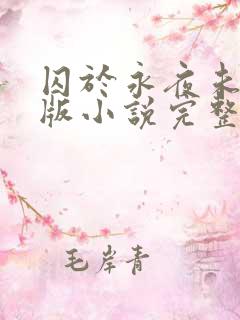 囚於永夜未
版小說完整
毛岸青